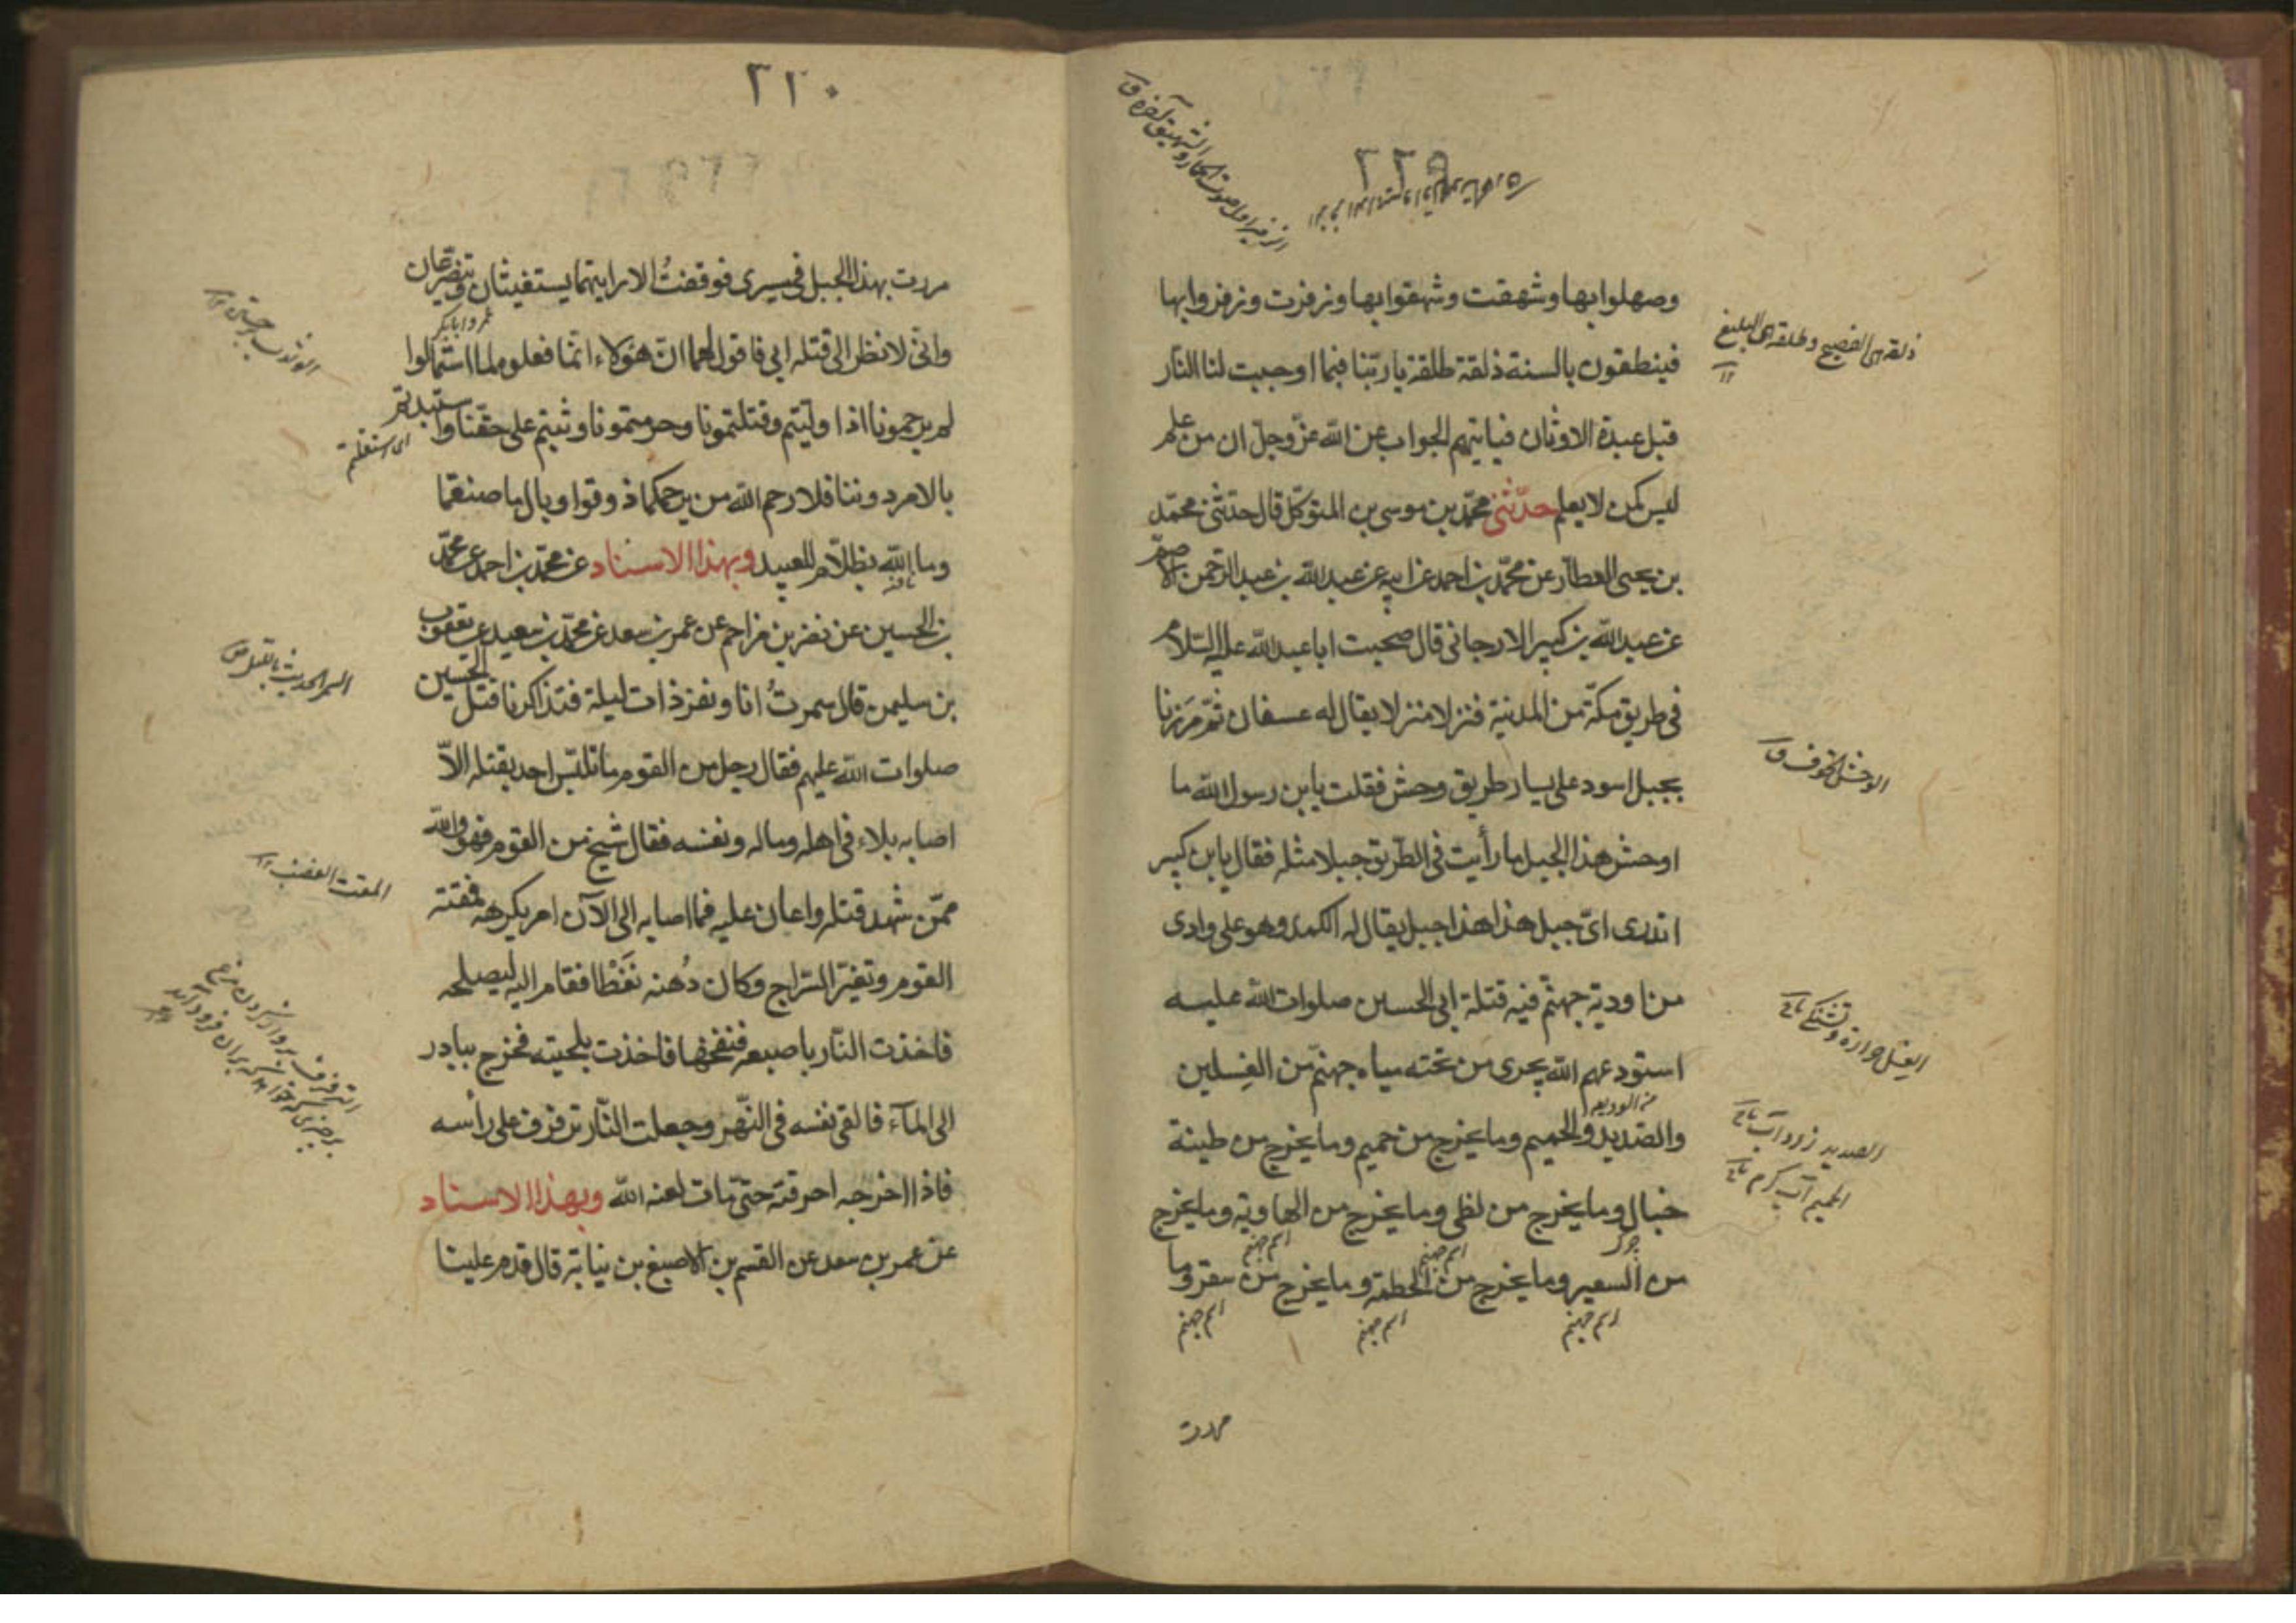 ٢٢٩
وصهلوا بها وشهقت وشهقوا بها وزفرت وزفروا بها
فينطقون بالسنة ذلقة طلقة يا ربّنا فبما اوجبت لنا النّار
قبل عبدة الاوثان فيايتهم الجواب عن الله عزّ وجلّ ان من علم
ليس كمن لا يعلم حدّثنى محمّد بن موسى بن المتوكّل قال حدثنى محمّد
بن يحيى العطار عن محمّد بن احمد عن ابيه عن عبد الله بن عبد الرّحمن الاصمّ
عن عبد الله بن كبير الارجانى قال صحبت ابا عبد الله عليه السّلام
فى طريق مكّة من المدينة فنزلا منزلا يقال له عسفان ثمّ مررنا
بجبل اسود على يسار طريق وحش فقلت يا بن رسول الله ما
اوحش هذا الجبل ما رأيت فى الطّريق جبلا مثله فقال يا بن كبير
اتدرى اىّ جبل هذا هذا جبل يقال له الكمد وهو على وادى
من اودية جهنّم فيه قتلة ابى الحسين صلوات الله عليه
استودعهم الله يجرى من تحته مياه جهنّم من الغسلين
من الوديعة
والصّديد والحميم وما يخرج من حميم وما يخرج من طينة
خبال وما يخرج من لظى وما يخرج من الهاوية وما يخرج
اسم جهنم اسم جهنم
من السعير وما يخرج من الحطمة وما يخرج من سقر وما
اسم جهنم اسم جهنم اسم جهنم
ذلقة اى الفصيح وطلقة اى البليغ
١٢
الوحش الخوف ق
الصديد زرد آب
الحميم آب گرم
مررت
٢٣٠
مررت بهذا الجبل فى مسيرى فوقفتُ الا رايتهما يستغيثان ويتضرّعان
وانّى لانظر الى قتله ابى فاقول لهما انّ هؤلاء انّما فعلوا ملا استمالوا
لم يرحمونا اذا ولّيتم وقتلتمونا وحرمتمونا وثبتم على حقّنا واستبدتم
بالامر دوننا فلا رحم الله من يرحمكما ذوقوا وبال ما صنعتما
وما الله بظلّام للعبيد وبهذا الاسناد عن محمّد بن احمد عن محمّد
بن الحسين عن نصر بن مزاحم عن عمر بن سعد عن محمّد بن سعيد عن يعقوب
بن سليمن قال سمرتُ انا ونفر ذات ليلة فتذاكرنا قتل الحسين
صلوات الله عليهم فقال رجل من القوم ما تلبّس احد بقتله الّا
اصابه بلاء فى اهله وماله ونفسه فقال شيخ من القوم فهو والله
ممّن شهد قتله واعان عليه فما اصابه الى الآن امر يكرهه فمقته
القوم وتغيّر السّراج وكان دُهنه نَفْطا فقام اليه ليصلحه
فاخذت النّار باصبعه فنفخها فاخذت بلحيته فخرج يبادر
الى المآء فالقى نفسه فى النّهر وجعلت النّار ترفرف على رأسه
فاذا اخرجه احرقته حتّى مات لعنه الله وبهذا الاسناد
عن عمر بن سعد عن القسم بن الاصبغ بن نباتة قال قدم علينا
اى استقللتم
السمر الحديث بالليل
المقت الغضب ١٢